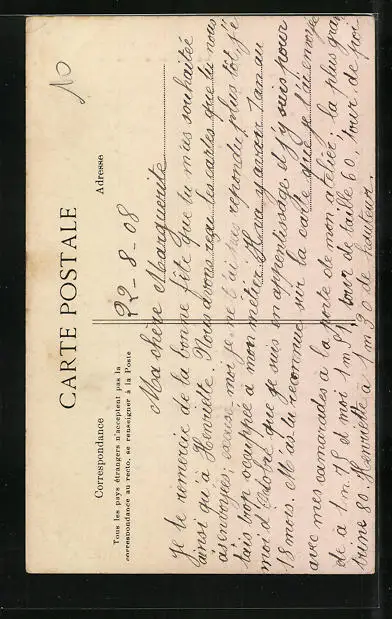 CARTE POSTALE
Correspondance
Adresse
Tous les pays étrangers n'acceptent pas la
correspondance au recto, se renseigner à la Poste
22-8-08
Ma chère Marguerite
Je te remercie de la bonne fête que tu m'as souhaitée
ainsi qu'à Henriette. Nous avons reçu les cartes que tu nous
as envoyées; excuse moi je ne t'ai pas repondu plus tôt, j'é
tais bon occuppée à mon métier. Il va y avoir 1 an au
moi d'Octobre que je suis en apprentissage et j'y suis pour
18 mois. M'as tu reconnue sur la carte que je t'ai envoyée
avec mes camarades à la porte de mon atelier, la plus gran
de a 1m.75 et moi 1m51, tour de taille 60, tour de poi
trine 80. Henriette a 1m30 de hauteur.